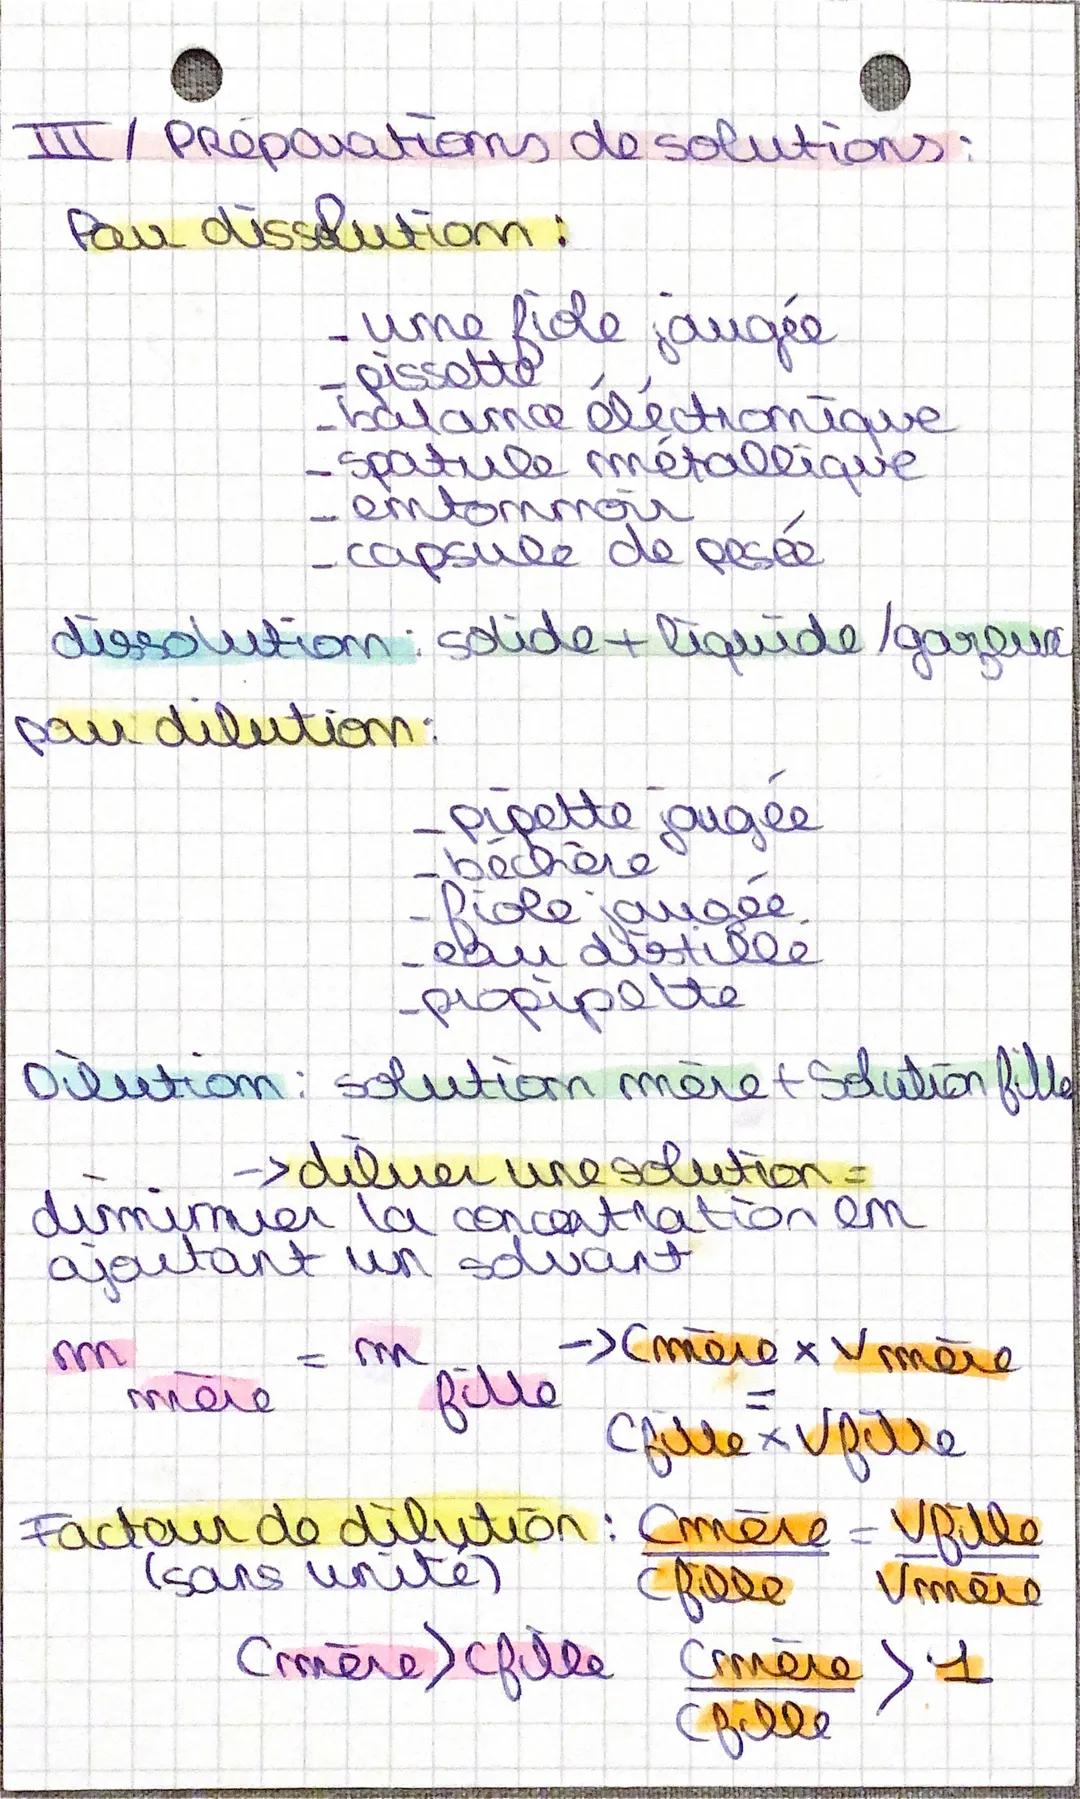 III / Préparations de solutions :
Par dissolution :
- une fiole jaugée
- pissette
- balance éléctronique
- spatule métallique
- entonnoir
- capsule de pesée
dissolution : solide + liquide / gazeux
par dilution :
- pipette jaugée
- béchère
- fiole jaugée
- eau distillé
- propipette
Dilution : solution mère + Solution fille
-> diluer une solution =
diminuer la concentration en
ajoutant un solvant
m mère = m fille -> Cmère x Vmère
=
Cfille x Vfille
Facteur de dilution : Cmère / Cfille = Vfille / Vmère
(sans unité)
Cmère > Cfille Cmère / Cfille > 1